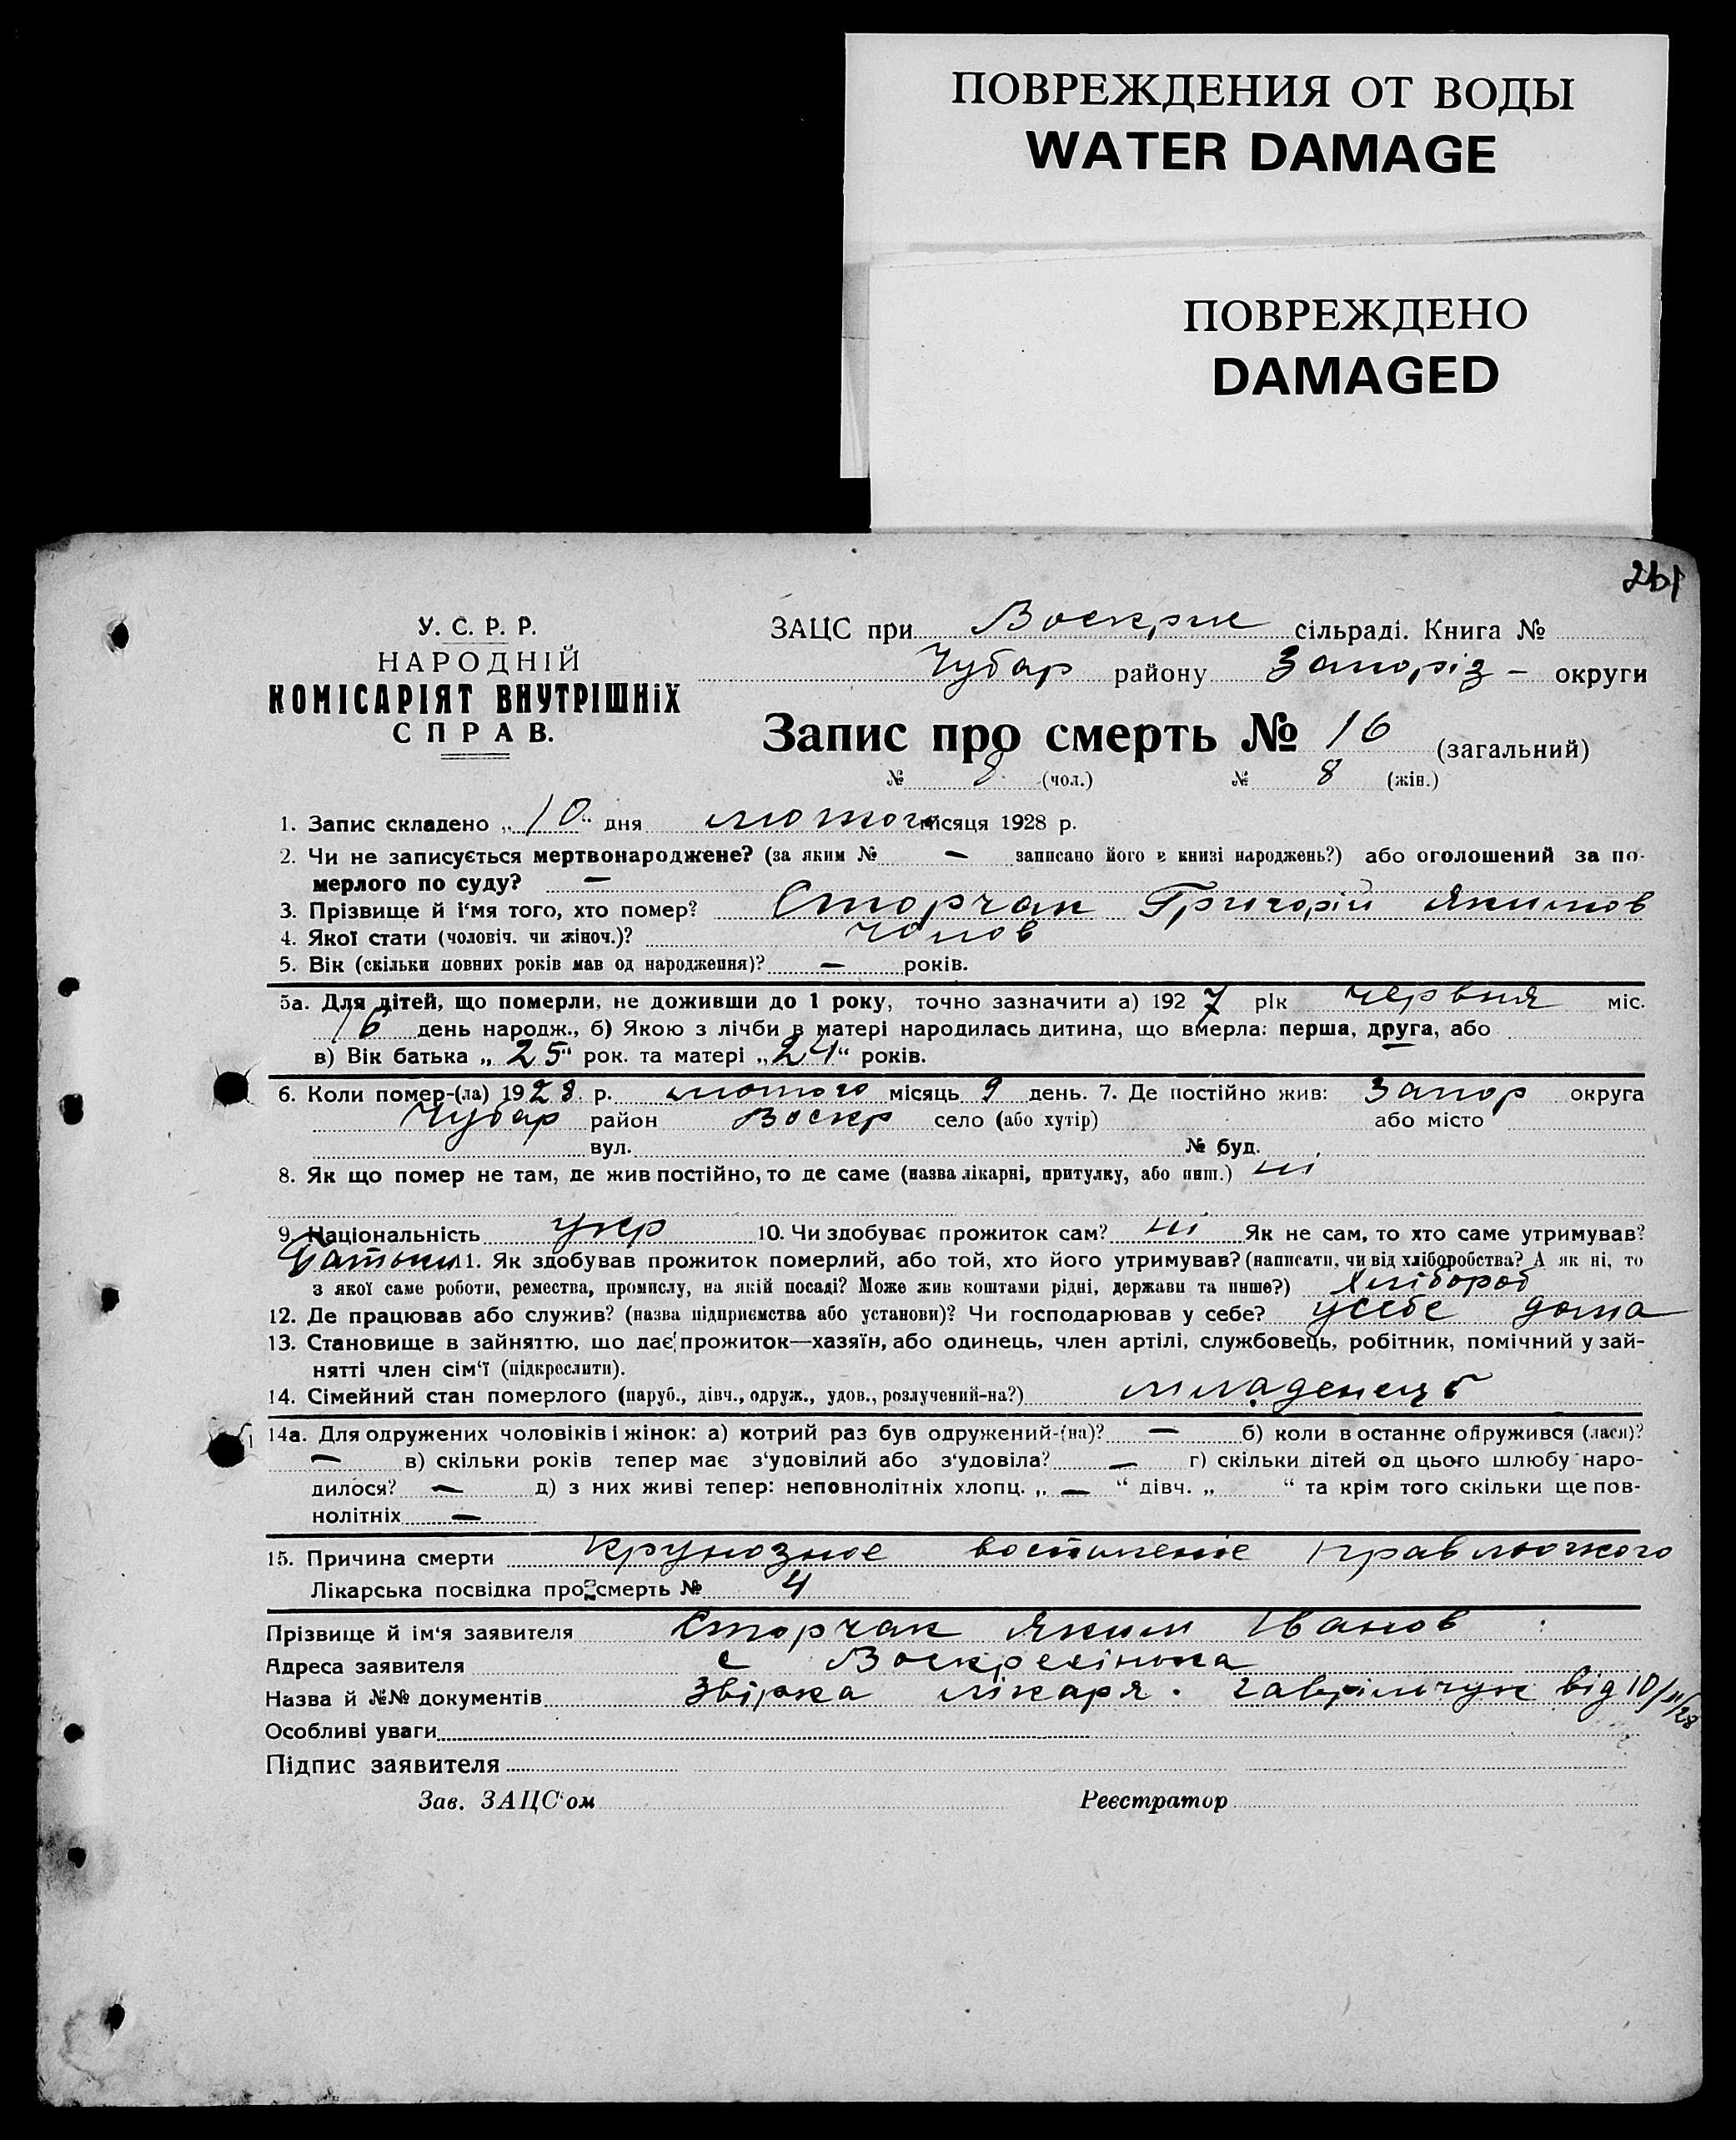 ПОВРЕЖДЕНИЯ ОТ ВОДЫ
WATER DAMAGE
ПОВРЕЖДЕНО
DAMAGED
У. С. Р. Р.
НАРОДНІЙ
КОМІСАРІЯТ ВНУТРІШНІХ
СПРАВ.
ЗАЦС при сільраді. Книга №
Чубар району Запоріз – округи
Запис про смерть № 16 (загальний)
№ 8 (чол.) № 8 (жін.)
1. Запис складено „10“ дня лютого місяця 1928 р.
2. Чи не записується мертвонароджене? (за яким № — записано його в книзі народжень?) або оголошений за по-
мерлого по суду? —
3. Прізвище й і'мя того, хто помер? Сторчак Григорій Якимов
4. Якої стати (чоловіч. чи жіноч.)? чолов
5. Вік (скільки повних років мав од народження)? — років.
5а. Для дітей, що померли, не доживши до 1 року, точно зазначити а) 1927 рік червня міс.
16 день народж., б) Якою з лічби в матері народилась дитина, що вмерла: перша, друга, або
в) Вік батька „25“ рок. та матері „24“ років.
6. Коли помер-(ла) 1928 р. лютого місяць 9 день. 7. Де постійно жив: Запор округа
Чубар район Воскр село (або хутір) або місто
вул. № буд.
8. Як що помер не там, де жив постійно, то де саме (назва лікарні, притулку, або инш.) ні
9. Національність укр 10. Чи здобуває прожиток сам? ні Як не сам, то хто саме утримував?
Батьки 11. Як здобував прожиток померлий, або той, хто його утримував? (написати, чи від хліборобства? А як ні, то
з якої саме роботи, ремества, промислу, на якій посаді? Може жив коштами рідні, держави та инше?) хлібороб
12. Де працював або служив? (назва підприємства або установи)? Чи господарював у себе? усебе дома
13. Становище в зайняттю, що дає прожиток—хазяїн, або одинець, член артілі, службовець, робітник, помічний у зай-
нятті член сім'ї (підкреслити).
14. Сімейний стан померлого (паруб., дівч., одруж., удов., розлучений-на?) младенець
14а. Для одружених чоловіків і жінок: а) котрий раз був одружений-(на)? — б) коли востаннє одружився (лася)?
— в) скільки років тепер має з'удовілий або з'удовіла? — г) скільки дітей од цього шлюбу наро-
дилося? — д) з них живі тепер: неповнолітніх хлопц. „ — “ дівч. „ “ та крім того скільки ще пов-
нолітніх —
15. Причина смерти крупозное воспиление
Лікарська посвідка про смерть № 4
Прізвище й ім'я заявителя Сторчак Яким Іванов
Адреса заявителя с Воскресінока
Назва й №№ документів лікаря. від 10/II/28
Особливі уваги
Підпис заявителя
Зав. ЗАЦС'ом Реєстратор